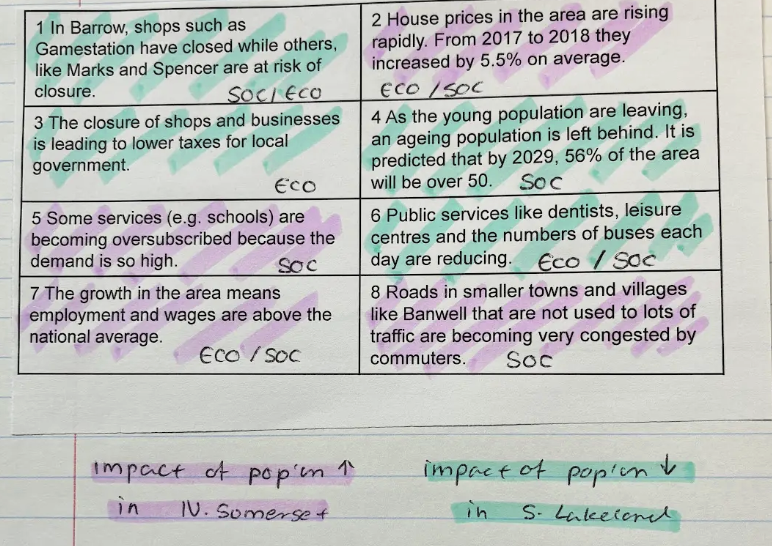 1 In Barrow, shops such as
Gamestation have closed while others,
like Marks and Spencer are at risk of
closure. SOC/ECO
2 House prices in the area are rising
rapidly. From 2017 to 2018 they
increased by 5.5% on average.
ECO / SOC
3 The closure of shops and businesses
is leading to lower taxes for local
government.
ECO
4 As the young population are leaving,
an ageing population is left behind. It is
predicted that by 2029, 56% of the area
will be over 50. SOC
5 Some services (e.g. schools) are
becoming oversubscribed because the
demand is so high. SOC
6 Public services like dentists, leisure
centres and the numbers of buses each
day are reducing. ECO / SOC
7 The growth in the area means
employment and wages are above the
national average.
ECO / SOC
8 Roads in smaller towns and villages
like Banwell that are not used to lots of
traffic are becoming very congested by
commuters. SOC
impact of pop'on ↑
in N. Somerset
impact of pop'on ↓
in S. Lakeland